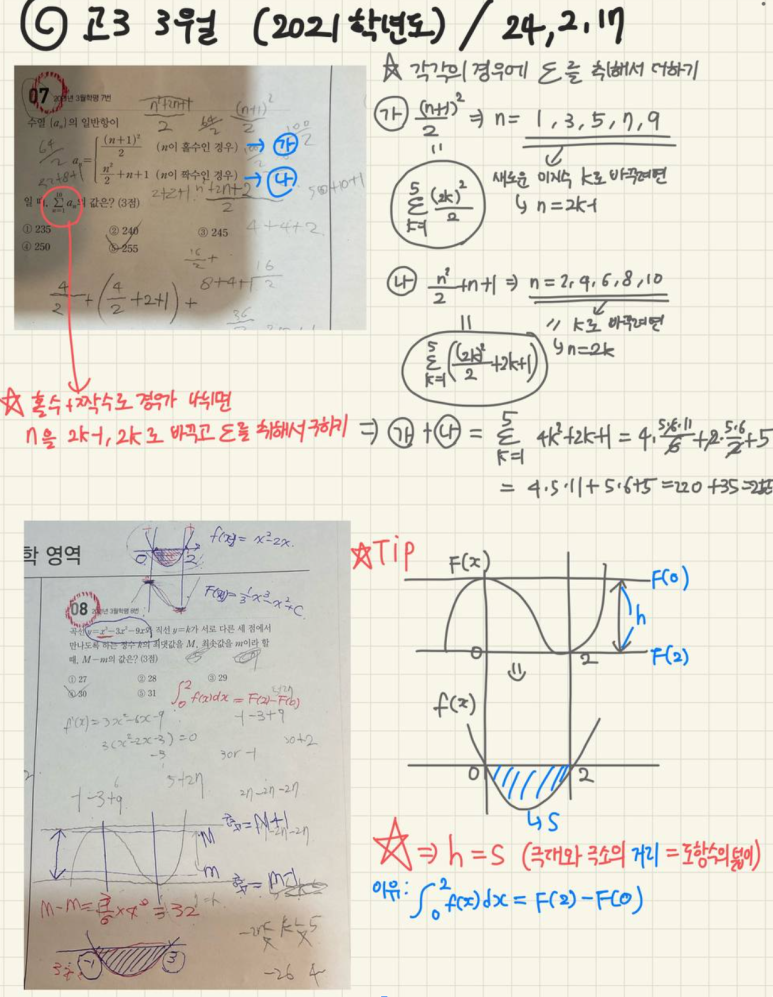 ⑥ 고3 3월 (2021학년도) / 24, 2, 17
07 2021년 3월학평 7번
수열 {aₙ}의 일반항이
aₙ = { (n+1)²/2 (n이 홀수인 경우) → 가
n²/2 + n + 1 (n이 짝수인 경우) → 나
일 때, Σ aₙ의 값은? (3점)
① 235 ② 240 ③ 245
④ 250 ⑤ 255
4/2 + (4/2 + 2 + 1) +
☆ 홀수 + 짝수로 경우가 나뉘면
n을 2k-1, 2k로 바꾸고 Σ를 취해서 구하기
☆ 각각의 경우에 Σ를 취해서 더하기
가 (n+1)²/2 ⇒ n = 1, 3, 5, 7, 9
새로운 미지수 k로 바꾸려면
↳ n = 2k-1
= Σ(k=1, 5) (2k)²/2
나 n²/2 + n + 1 ⇒ n = 2, 4, 6, 8, 10
〃 k로 바꾸려면
↳ n = 2k
= Σ(k=1, 5) ((2k)²/2 + 2k + 1)
⇒ 가 + 나 = Σ(k=1, 5) 4k² + 2k + 1 = 4·5·6·11/6 + 2·5·6/2 + 5
= 4·5·11 + 5·6 + 5 = 220 + 35 = 255
학 영역
0 2 f(x) = x²-2x.
F(x) = 1/3x³-x²+C
08 2021년 3월학평 8번
곡선 y=x³-3x²-9x와 직선 y=k가 서로 다른 세 점에서
만나도록 하는 정수 k의 최댓값을 M, 최솟값을 m이라 할
때, M-m의 값은? (3점)
① 27 ② 28 ③ 29
④ 30 ⑤ 31
∫₀² f(x)dx = F(2)-F(0)
f'(x) = 3x²-6x-9
3(x²-2x-3) = 0
3 or -1
-1-3+9
M
m
-1 3
☆Tip
F(x)
F(0)
h
F(2)
0 2
f(x)
0 2
↳ S
☆ ⇒ h = S (극대와 극소의 거리 = 도함수의 넓이)
이유: ∫₀² f(x)dx = F(2) - F(0)